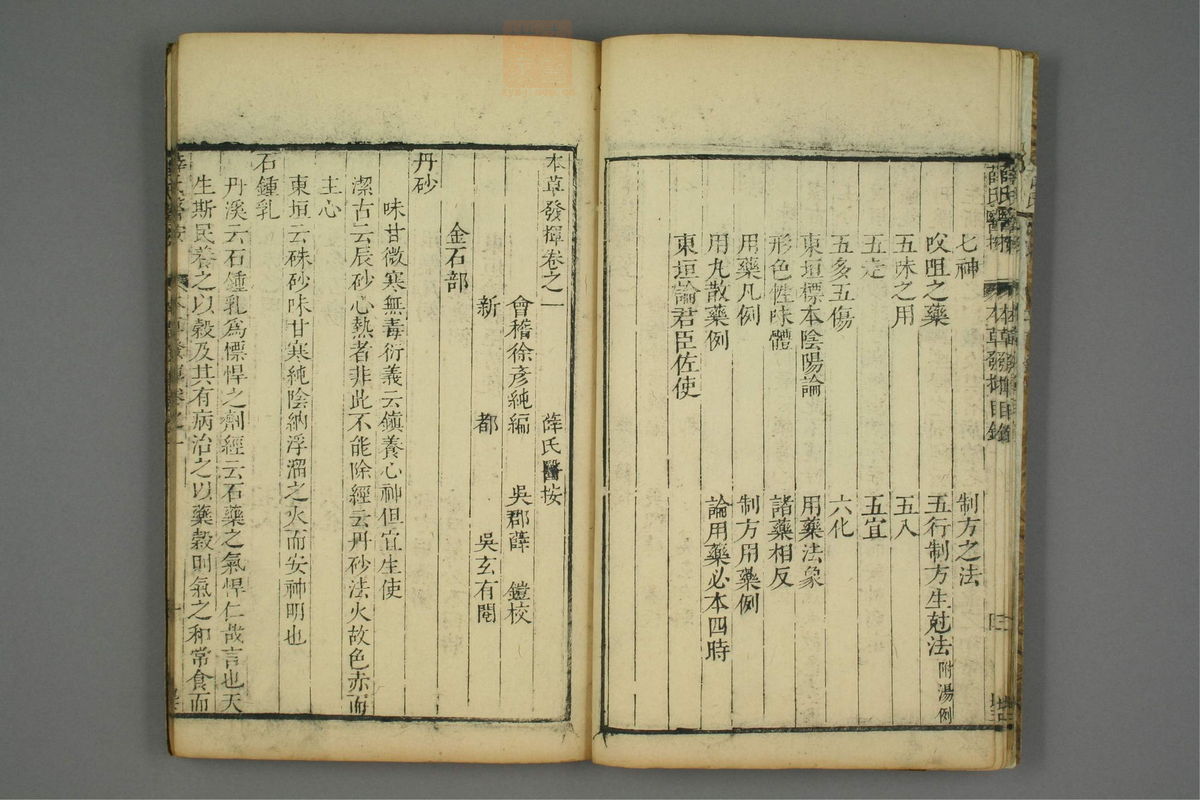 薛氏醫按 本草發揮目錄
七神 制方之法
㕮咀之藥 五行制方生尅法附湯例
五味之用 五入
五走 五宜
五多五傷 六化
東垣標本陰陽論 用藥法象
形色性味體 諸藥相反
用藥凡例 制方用藥例
用丸散藥例 論用藥必本四時
東垣論君臣佐使
本草發揮卷之一 薛氏醫按
會稽徐彥純編 吳郡薛 鎧校
新 都 吳玄有閱
金石部
丹砂
味甘微寒無毒衍義云鎮養心神但宜生使
潔古云辰砂心熱者非此不能除經云丹砂法火故色赤而
主心
東垣云硃砂味甘寒純陰納浮溜之火而安神明也
石鍾乳
丹溪云石鍾乳爲慓悍之劑經云石藥之氣悍仁哉言也天
生斯民養之以穀及其有病治之以藥穀則氣之和常食而